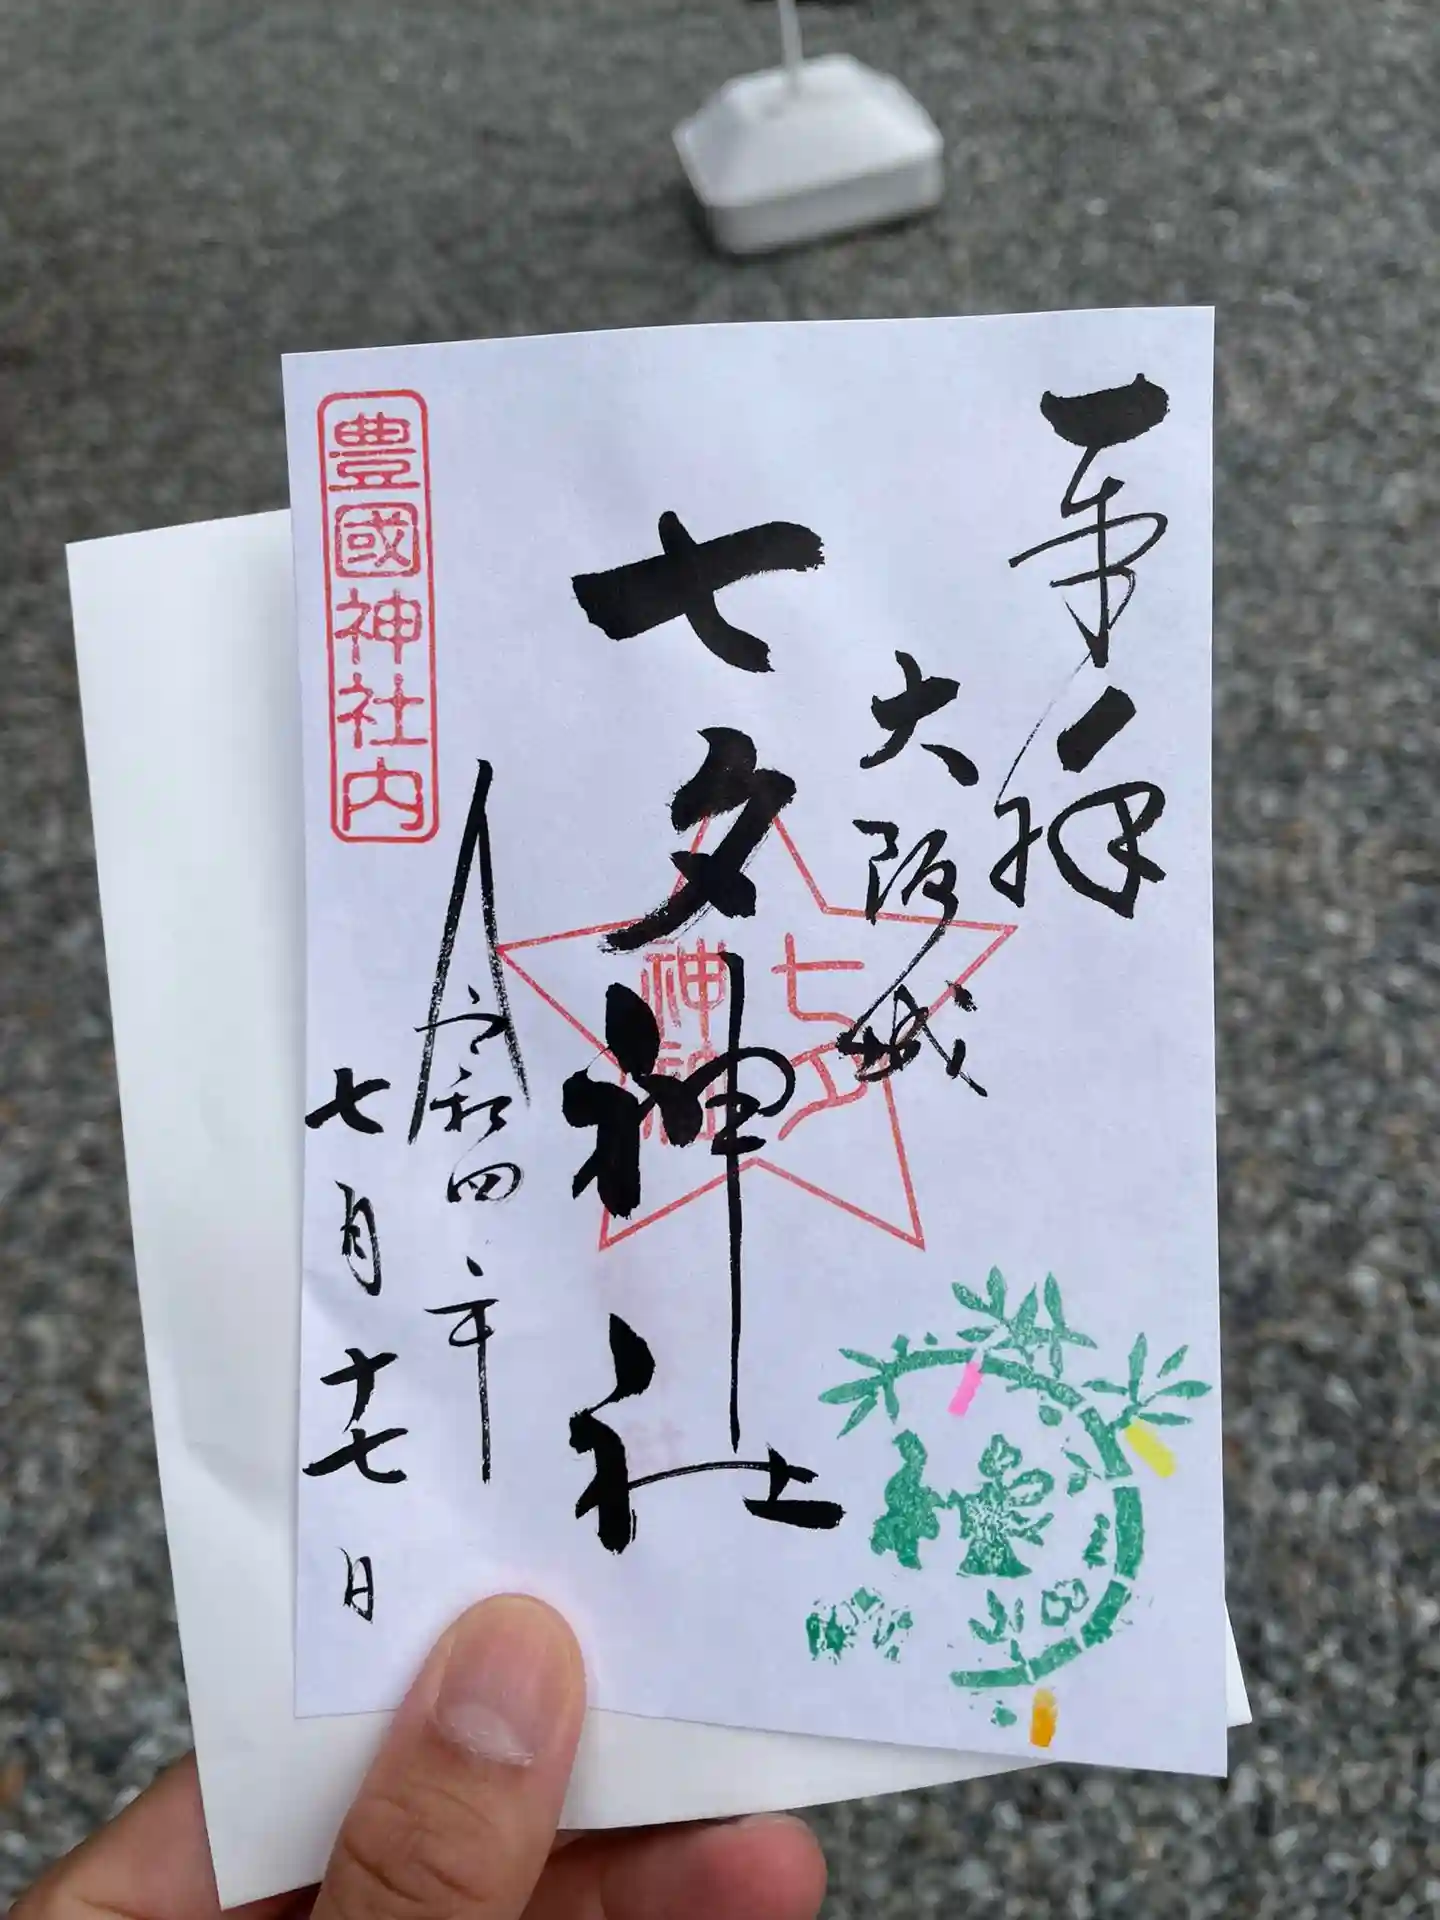 奉拝
大阪城
七夕神社
七夕
神社
令和四年
七月十七日
豊國神社内